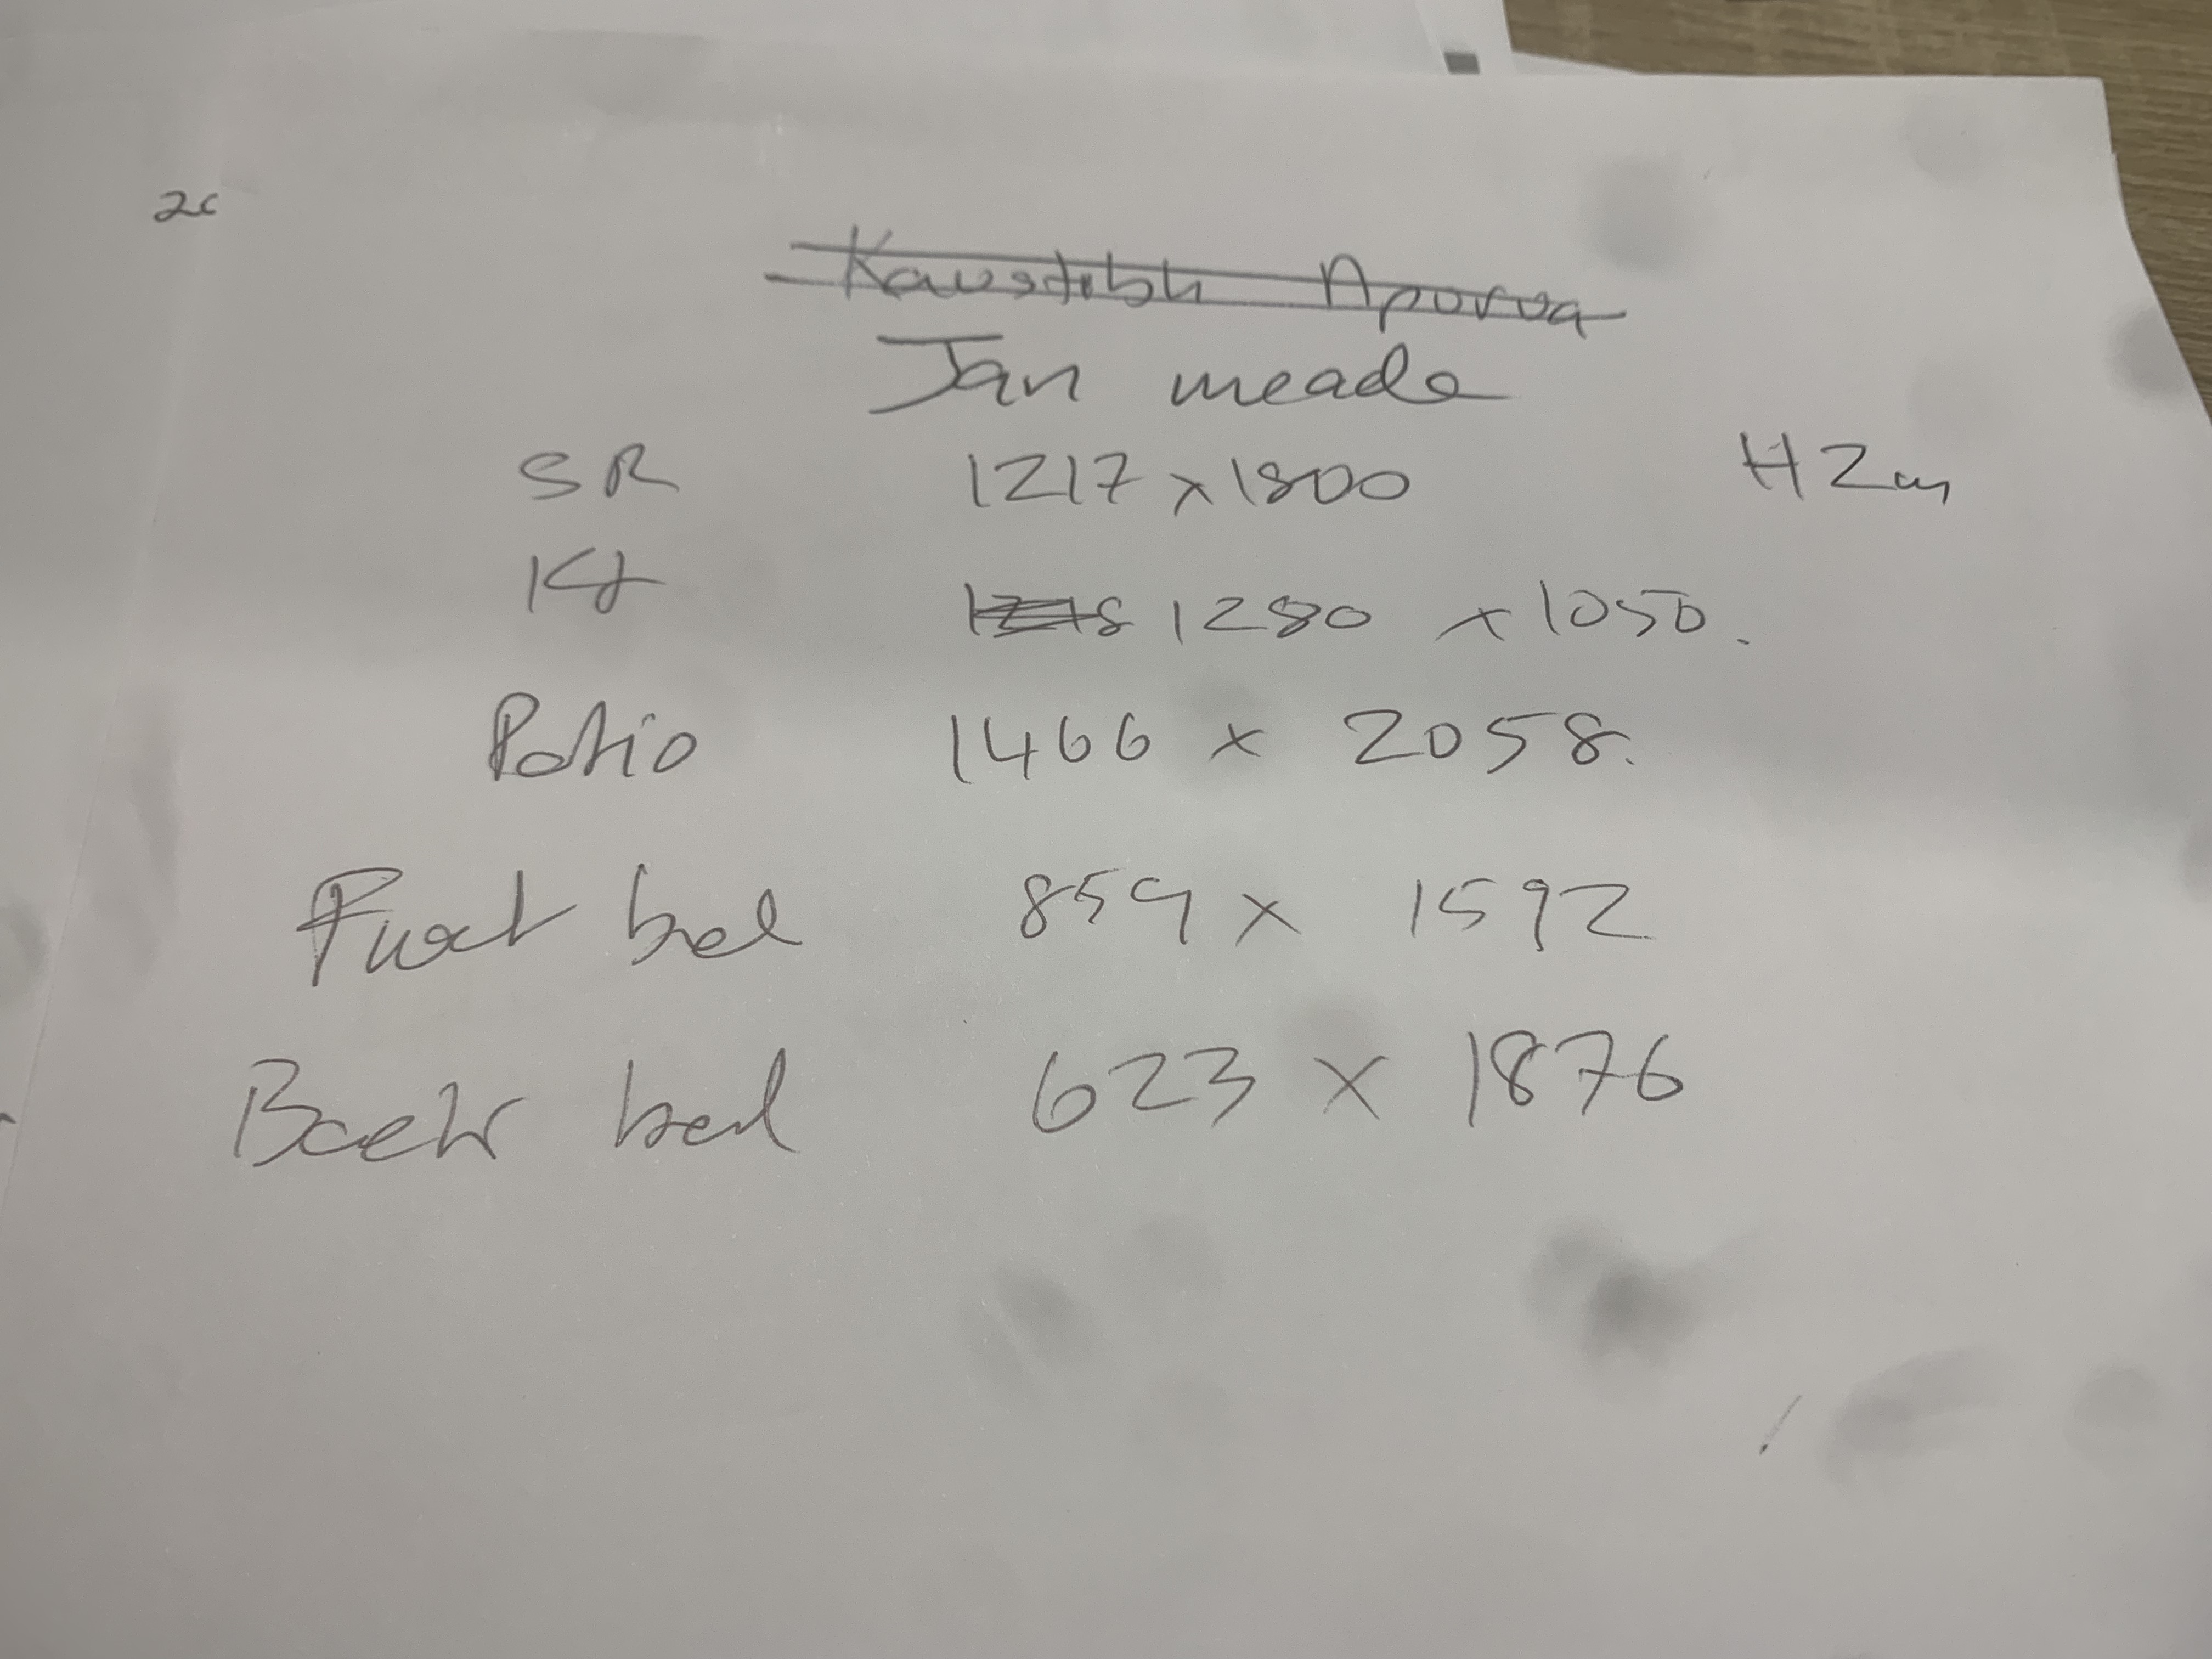 2c
Kaustubh Aporva
Jan meade
SR 1217 x 1800 H 2m
Kt 1280 x 1050.
Patio 1466 x 2058.
Front bed 859 x 1592
Back bed 623 x 1876